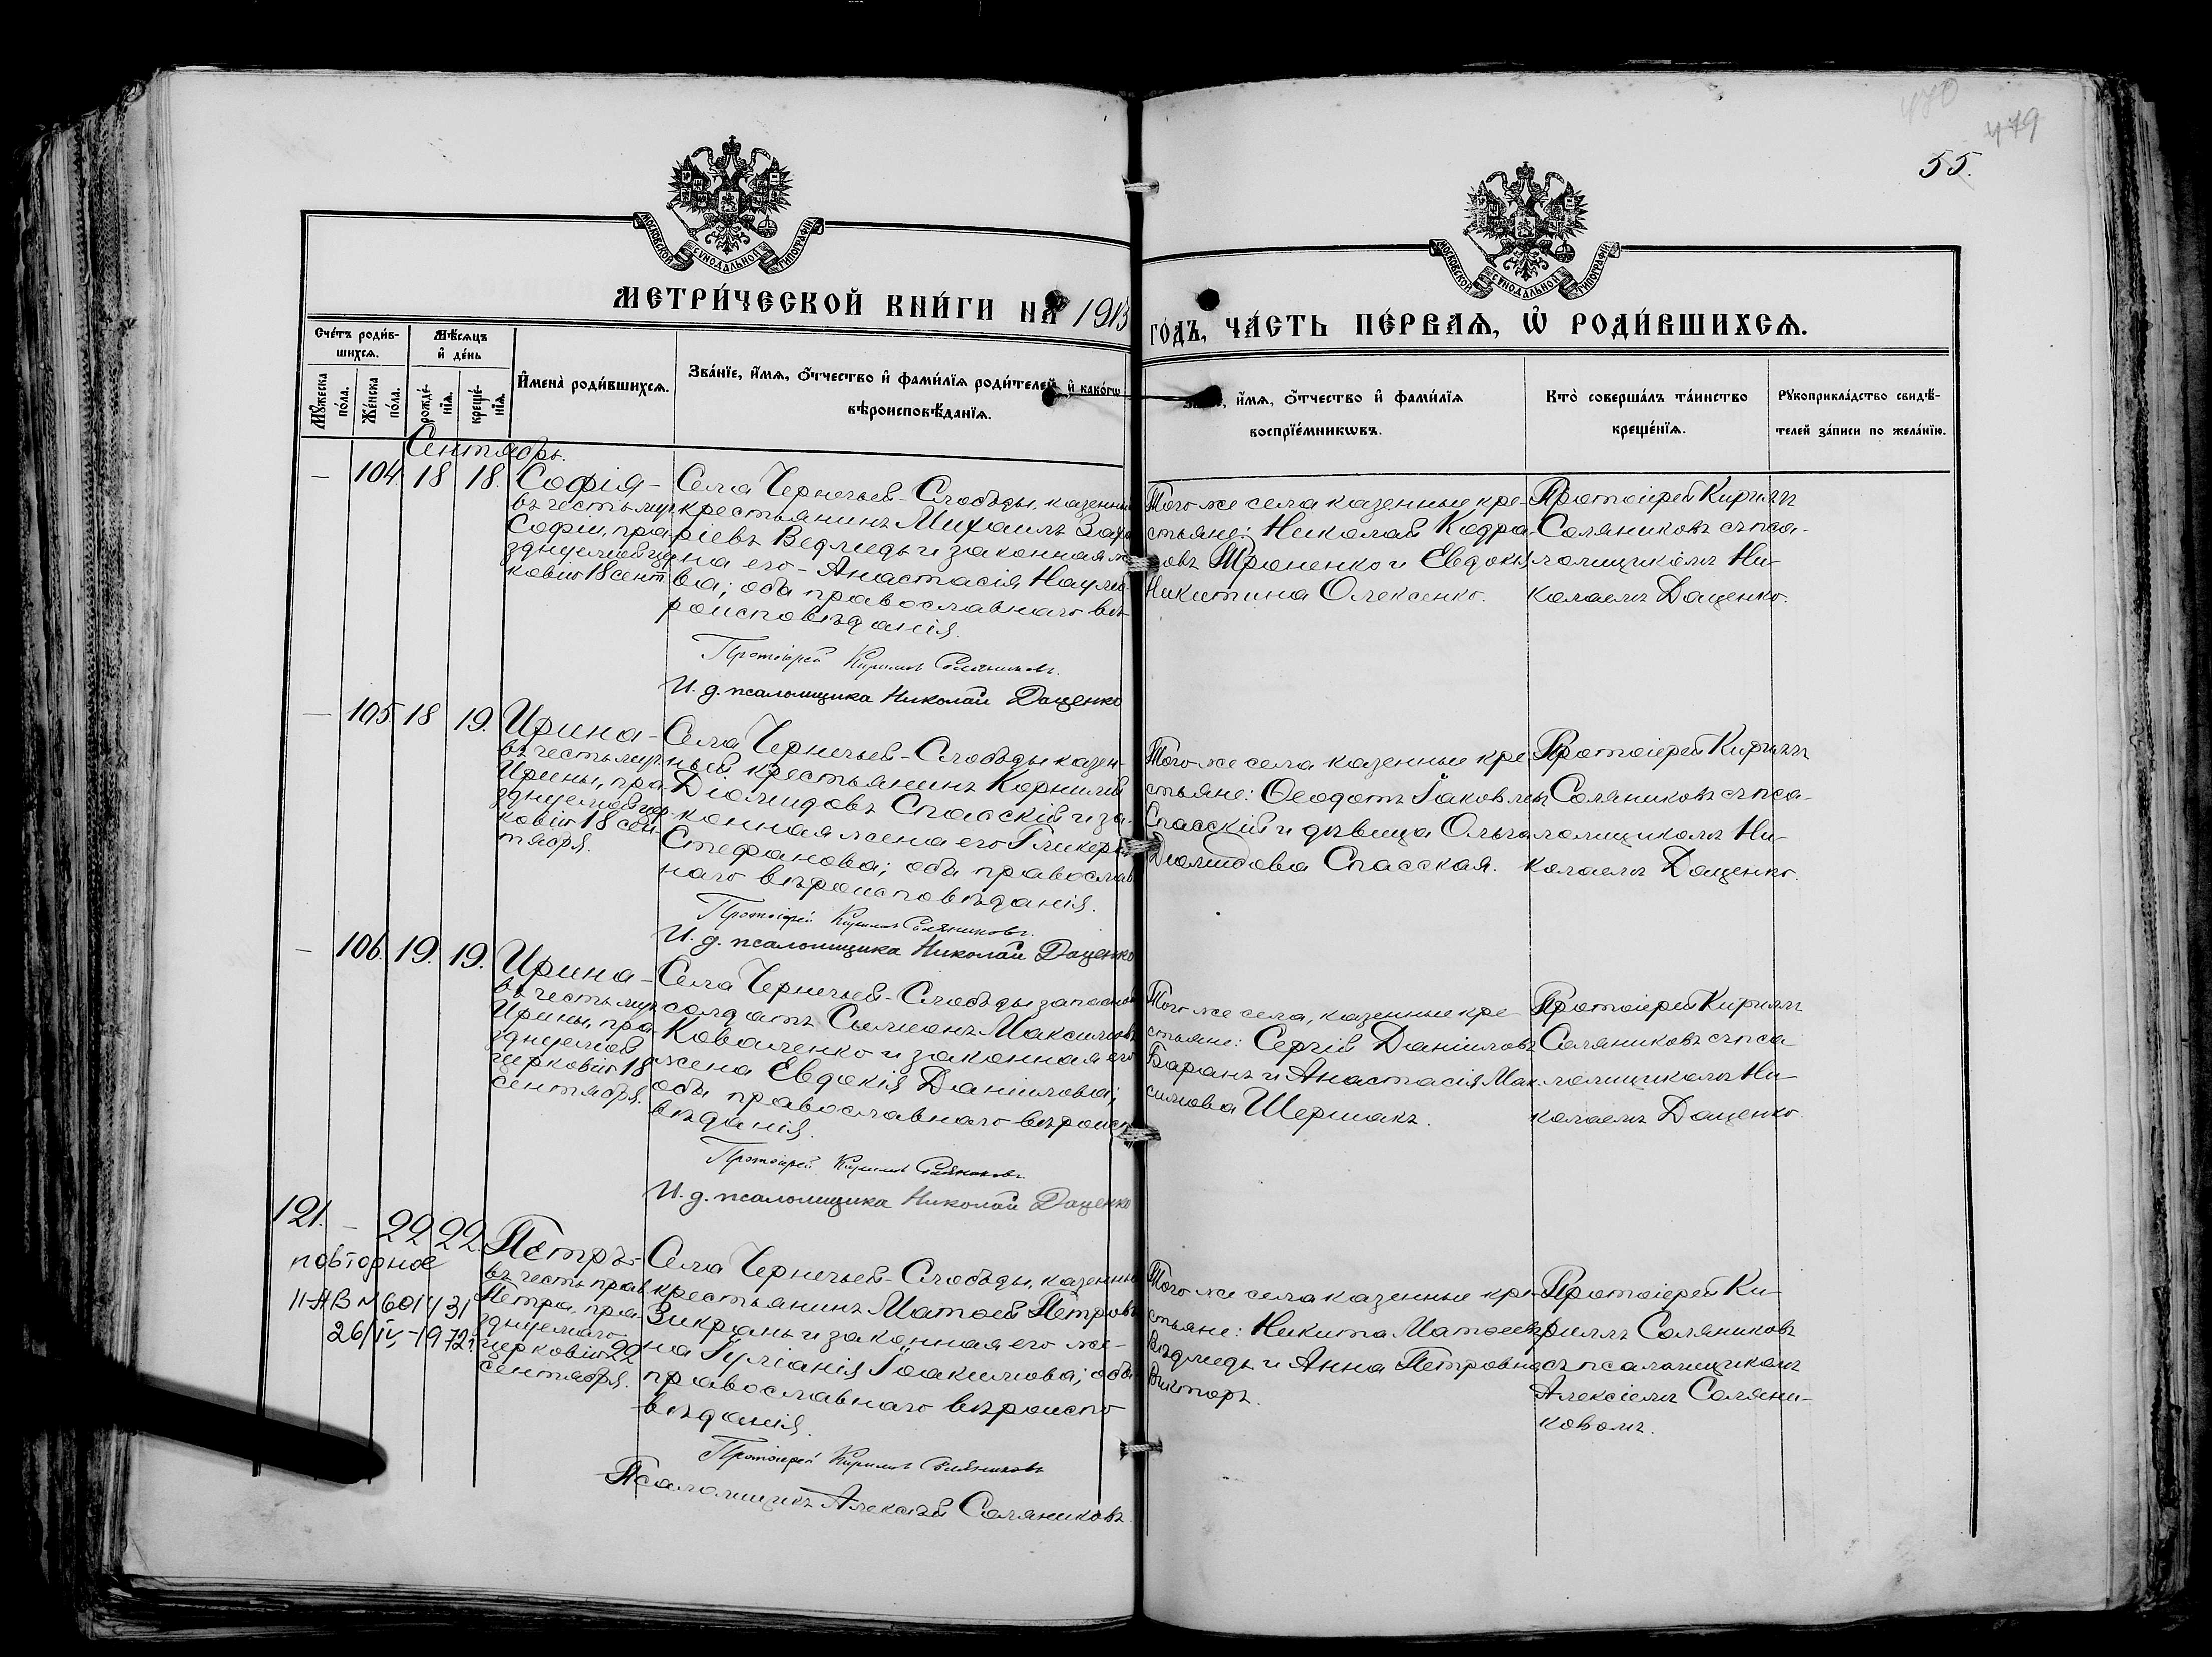 470
479
55.
МОСКОВСКОЙ СѴНОДАЛЬНОЙ ТИПОГРАФІИ
МОСКОВСКОЙ СѴНОДАЛЬНОЙ ТИПОГРАФІИ
МЕТРИ́ЧЕСКОЙ КНИ́ГИ НА 1913
ГО́ДЪ, ЧА́СТЬ ПЕ́РВАЯ, Ѡ҆ РОДИ́ВШИХСЯ.
Сче́тъ роди́в-
шихся.
Мѣ́сяцъ
и҆ де́нь
Мꙋ́жеска
по́ла.
Же́нска
по́ла.
рожде́-
нїя.
креще́-
нїя.
И҆мена̀ роди́вшихся.
Зва́нїе, и҆́мя, ѻ҆́тчество и҆ фами́лїя роди́телей, и҆ како́гѡ
вѣроисповѣ́данїя.
и҆́мя, ѻ҆́тчество и҆ фами́лїя
воспрїе́мникѡвъ.
Кто̀ соверша́лъ та́инство
креще́нїя.
Рꙋкоприкла́дство свидѣ́-
телей за́писи по жела́нїю.
Сентябрь.
— 104. 18 18.
Софія –
въ честь муч.
Софіи, пра-
зднуемой цер-
ковію 18 сент.
Села Чернечьей-Слободы, казенный
крестьянинъ Михаилъ Заха-
ріевъ Ведмедь и законная же-
на его – Анастасія Наумо-
ва; оба православнаго вѣ-
роисповѣданія.
Протоіерей Кириллъ Соляниковъ.
И. д. псаломщика Николай Даценко
Того же села казенные кре-
стьяне: Николай Кодра-
товъ Троненко и Евдокія
Никитина Олексенко.
Протоіерей Кириллъ
Соляниковъ съ пса-
ломщикомъ Ни-
колаемъ Даценко.
— 105 18 19.
Ирина –
въ честь муч.
Ирины, пра-
зднуемой цер-
ковію 18 сен-
тября.
Села Чернечьей-Слободы казен-
ный крестьянинъ Корнилій
Діомидовъ Спасскій и за-
конная жена его Гликерія
Стефанова; оба православ-
наго вѣроисповѣданія.
Протоіерей Кириллъ Соляниковъ.
И. д. псаломщика Николай Даценко
Того же села казенные кре-
стьяне: Ѳеодотъ Іаковлевъ
Спасскій и дѣвица Ольга
Діомидова Спасская.
Протоіерей Кириллъ
Соляниковъ съ пса-
ломщикомъ Ни-
колаемъ Даценко.
— 106. 19. 19.
Ирина –
въ честь муч.
Ирины, пра-
зднуемой
церковію 18
сентября.
Села Чернечьей-Слободы запасной
солдатъ Симеонъ Максимовъ
Коваленко и законная его
жена Евдокія Даніилова;
оба православнаго вѣроиспо-
вѣданія.
Протоіерей Кириллъ Соляниковъ.
И. д. псаломщика Николай Даценко
Того же села, казенные кре-
стьяне: Сергій Даніиловъ
Баранъ и Анастасія Мак-
симова Шершакъ.
Протоіерей Кириллъ
Соляниковъ съ пса-
ломщикомъ Ни-
колаемъ Даценко.
121. — 22 22.
повторное
II-АВ № 601431
26/IV-1972 г.
Петръ –
въ честь прав.
Петра, пра-
зднуемаго
церковію 22
сентября.
Села Чернечьей-Слободы, казенный
крестьянинъ Матѳей Петровъ
Зикрань и законная его же-
на Іуліанія Іоакимова; оба
православнаго вѣроиспо-
вѣданія.
Протоіерей Кириллъ Соляниковъ
Псаломщикъ Алексѣй Соляниковъ.
Того же села казенные кре-
стьяне: Никита Матѳеевъ
Ведмедь и Анна Петровна
Викторъ.
Протоіерей Ки-
риллъ Соляниковъ
съ псаломщикомъ
Алексіемъ Соляни-
ковомъ.